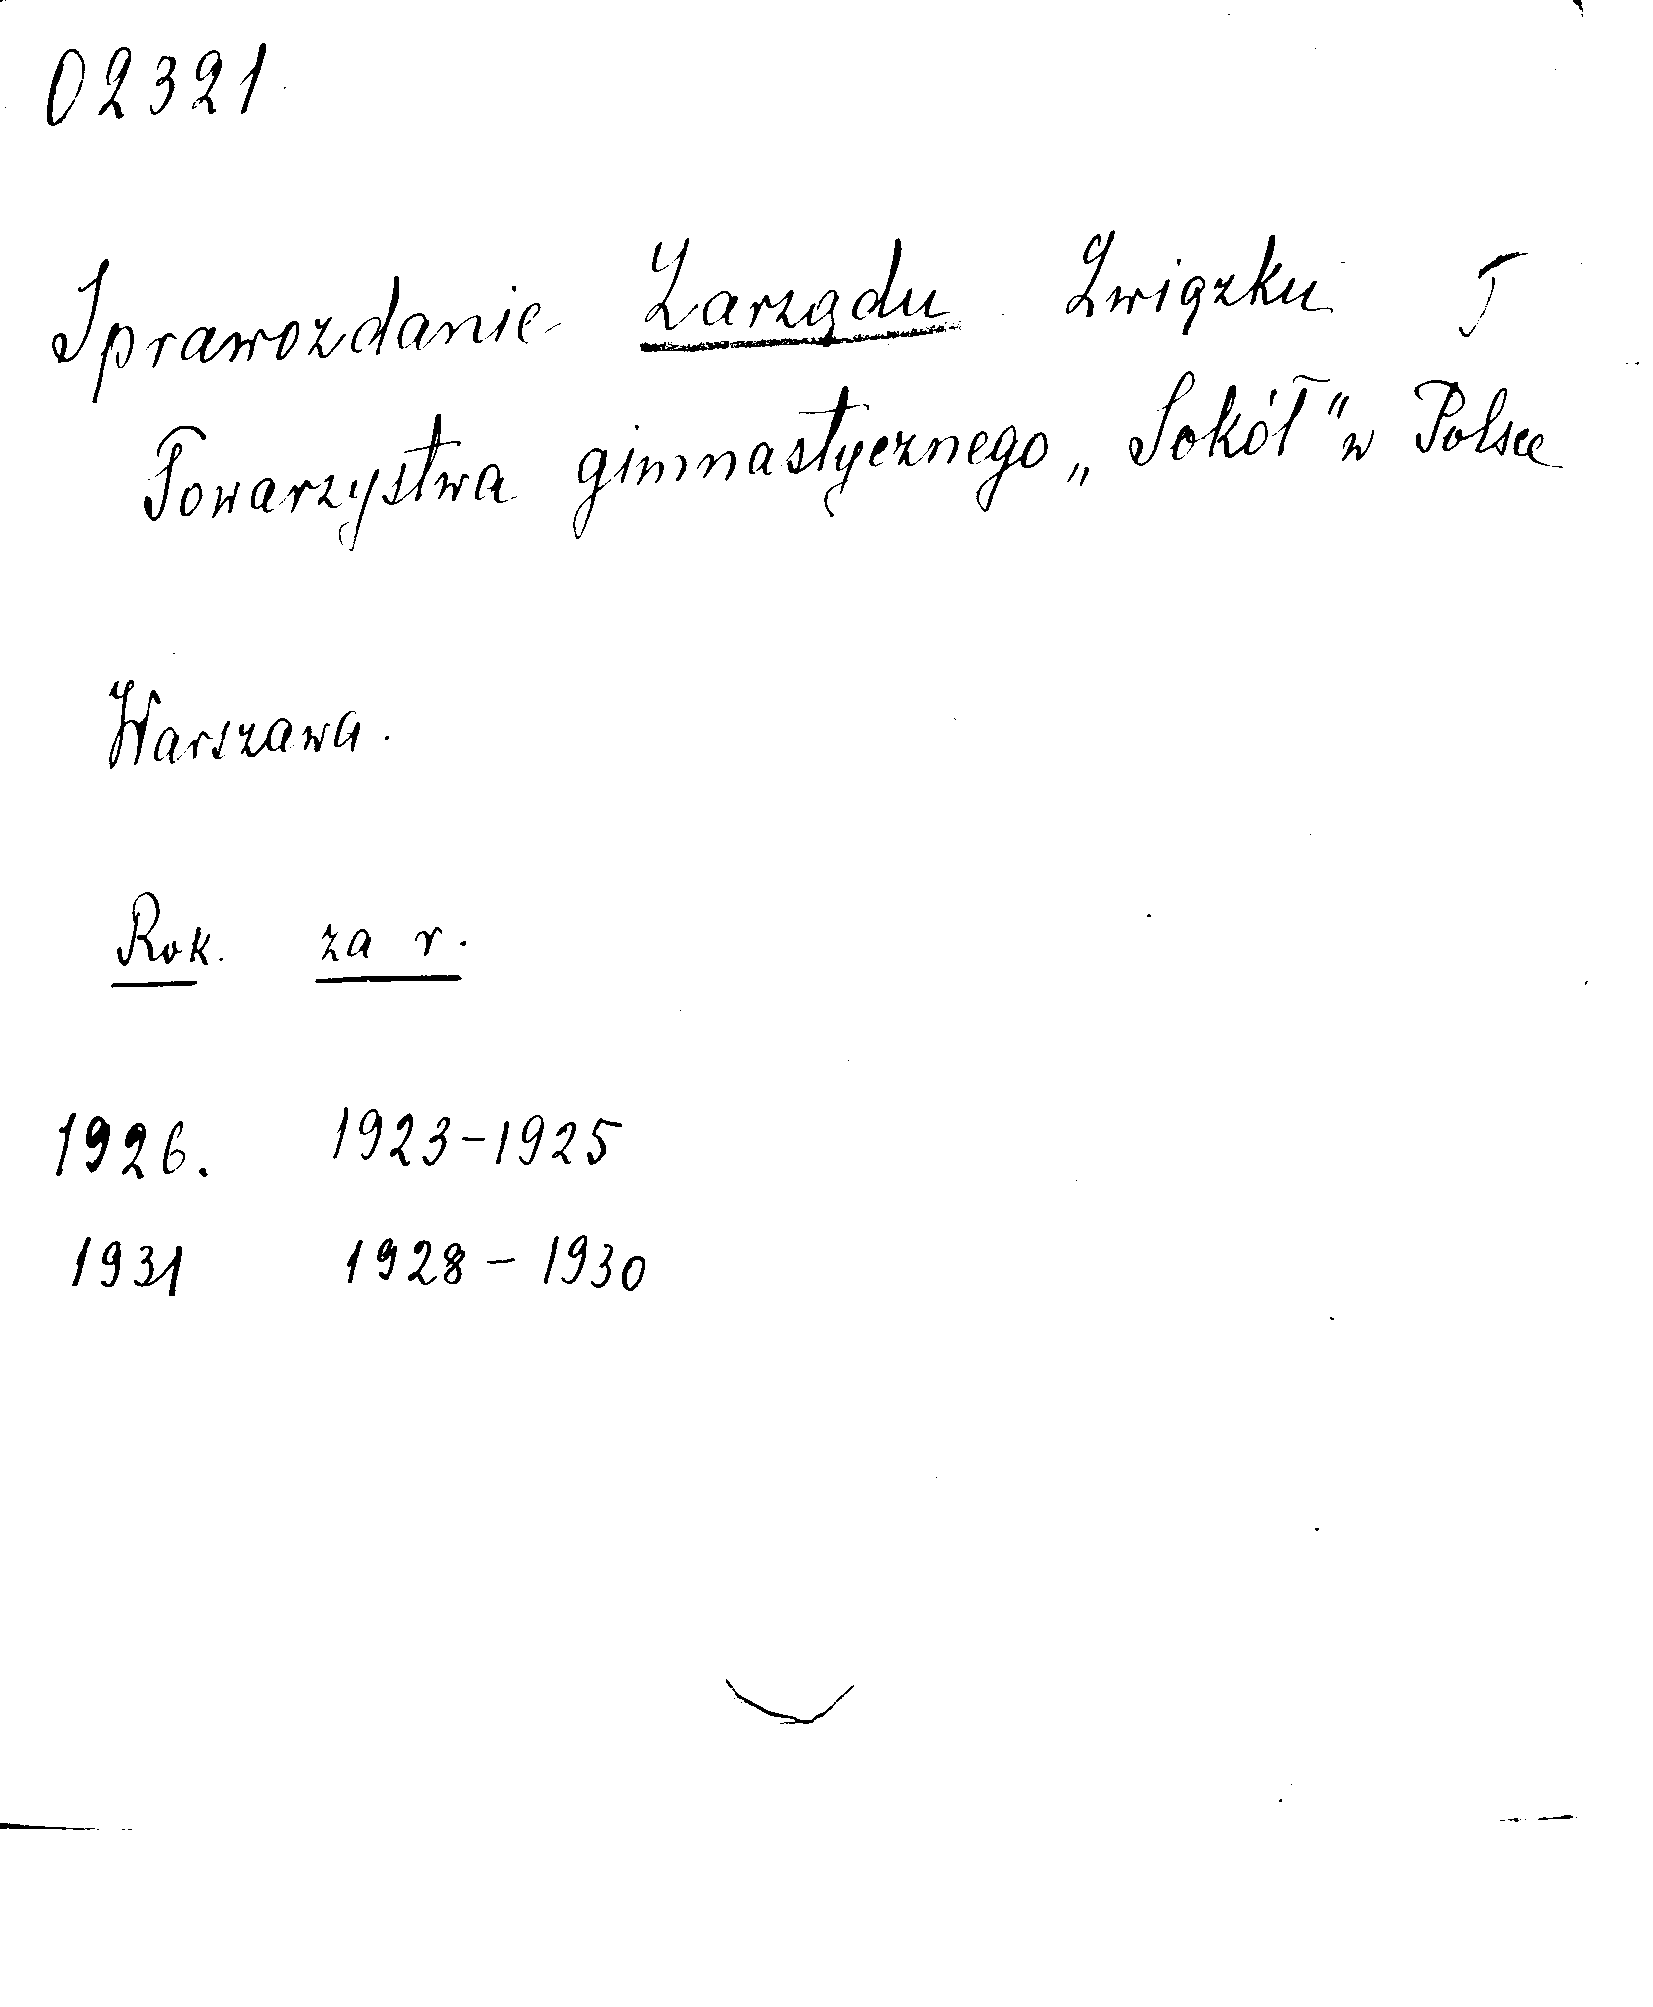 02321
Sprawozdanie Zarządu Związku T
Towarzystwa gimnastycznego „Sokół" w Polsce
Warszawa.
Rok. za r.
1926. 1923-1925
1931 1928 - 1930